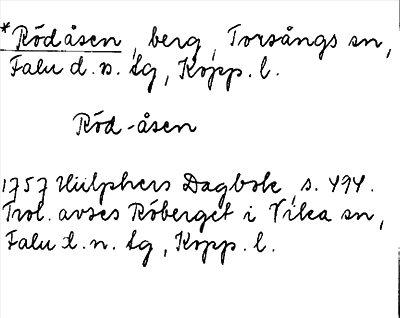 *Rödåsen, berg, Torsångs sn,
Falu d. n. tg, Kopp. l.
Röd-åsen
1757 Hülphers Dagbok, s. 494.
Trol. avses Röberget i Vika sn,
Falu d. n. tg, Kopp. l.